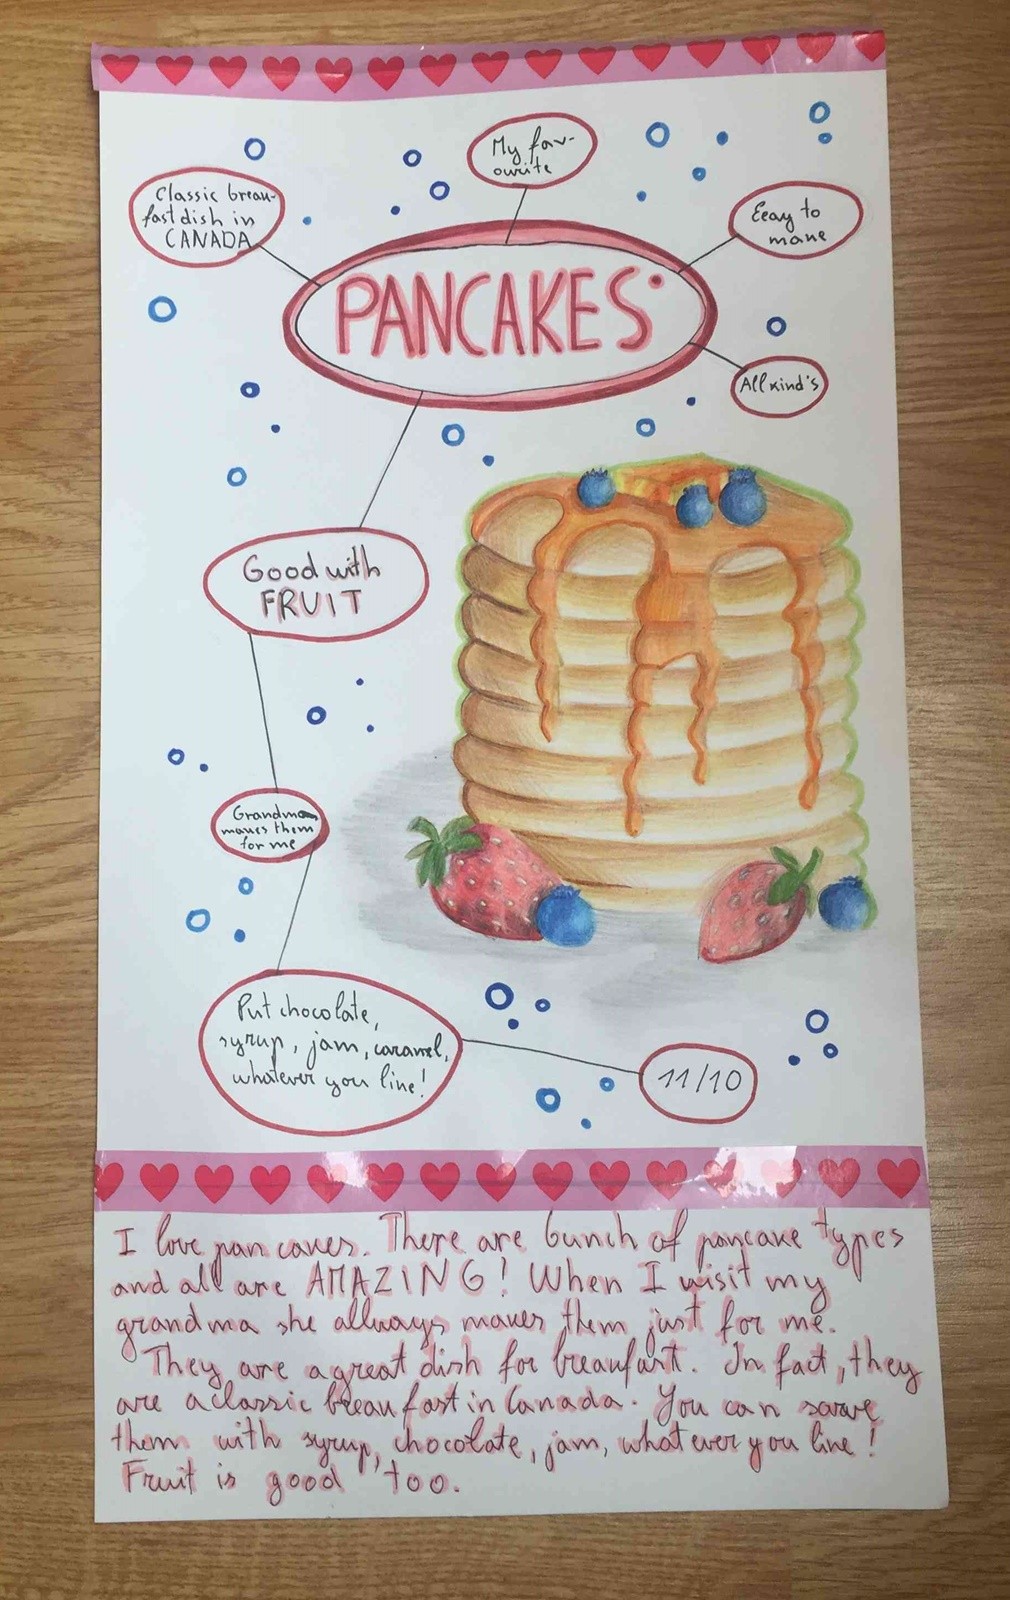 My fav-
ourite
Classic break-
fast dish in
CANADA
Easy to
make
PANCAKES
All kind's
Good with
FRUIT
Grandma
makes them
for me
Put chocolate,
syrup, jam, caramel,
whatever you like!
11/10
I love pancakes. There are bunch of pancake types
and all are AMAZING! When I wisit my
grandma she allways makes them just for me.
They are a great dish for breakfast. In fact, they
are a classic breakfast in Canada. You can sarve
them with syrup, chocolate, jam, whatever you like!
Fruit is good too.